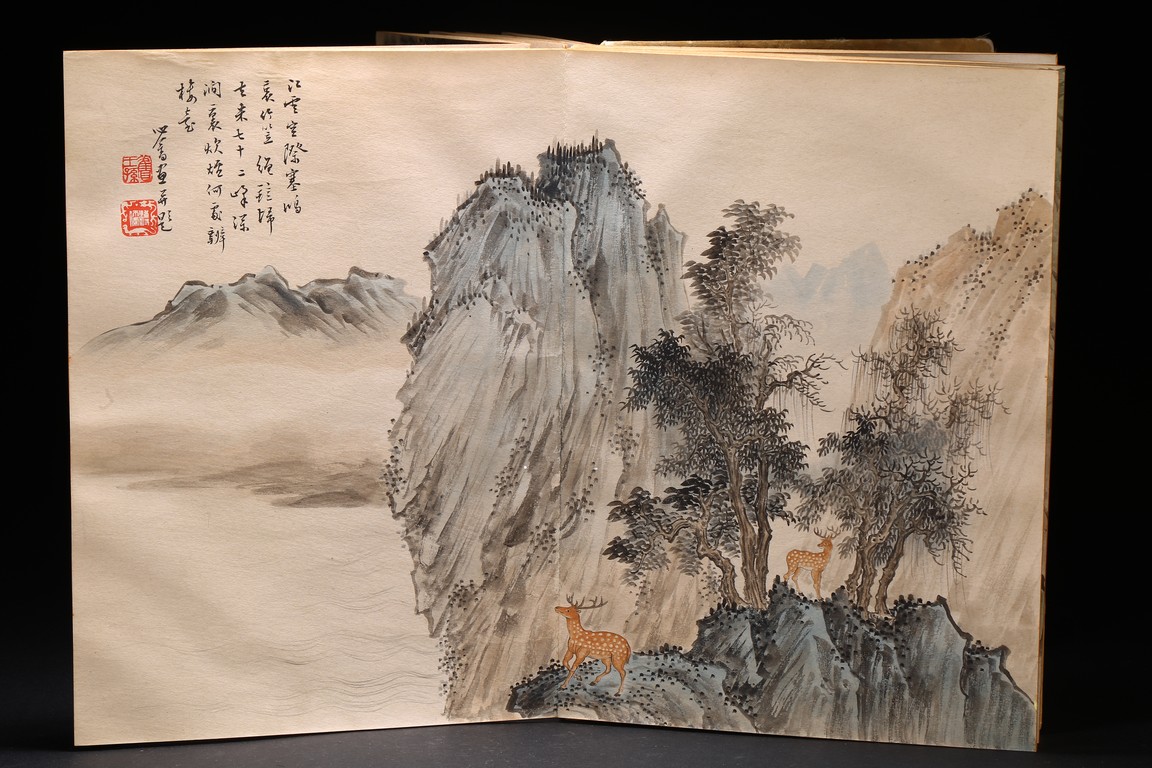 江雲空際塞鴻
哀竹笠歸
去来七十二峰深
澗裏炊煙何處辨
樓臺
心畬畫并題
舊王孫